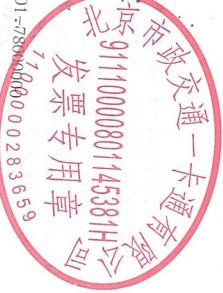 北京市政交通一卡通有限公司
91110000801145381H
发票专用章
1100000283659
01-78000000